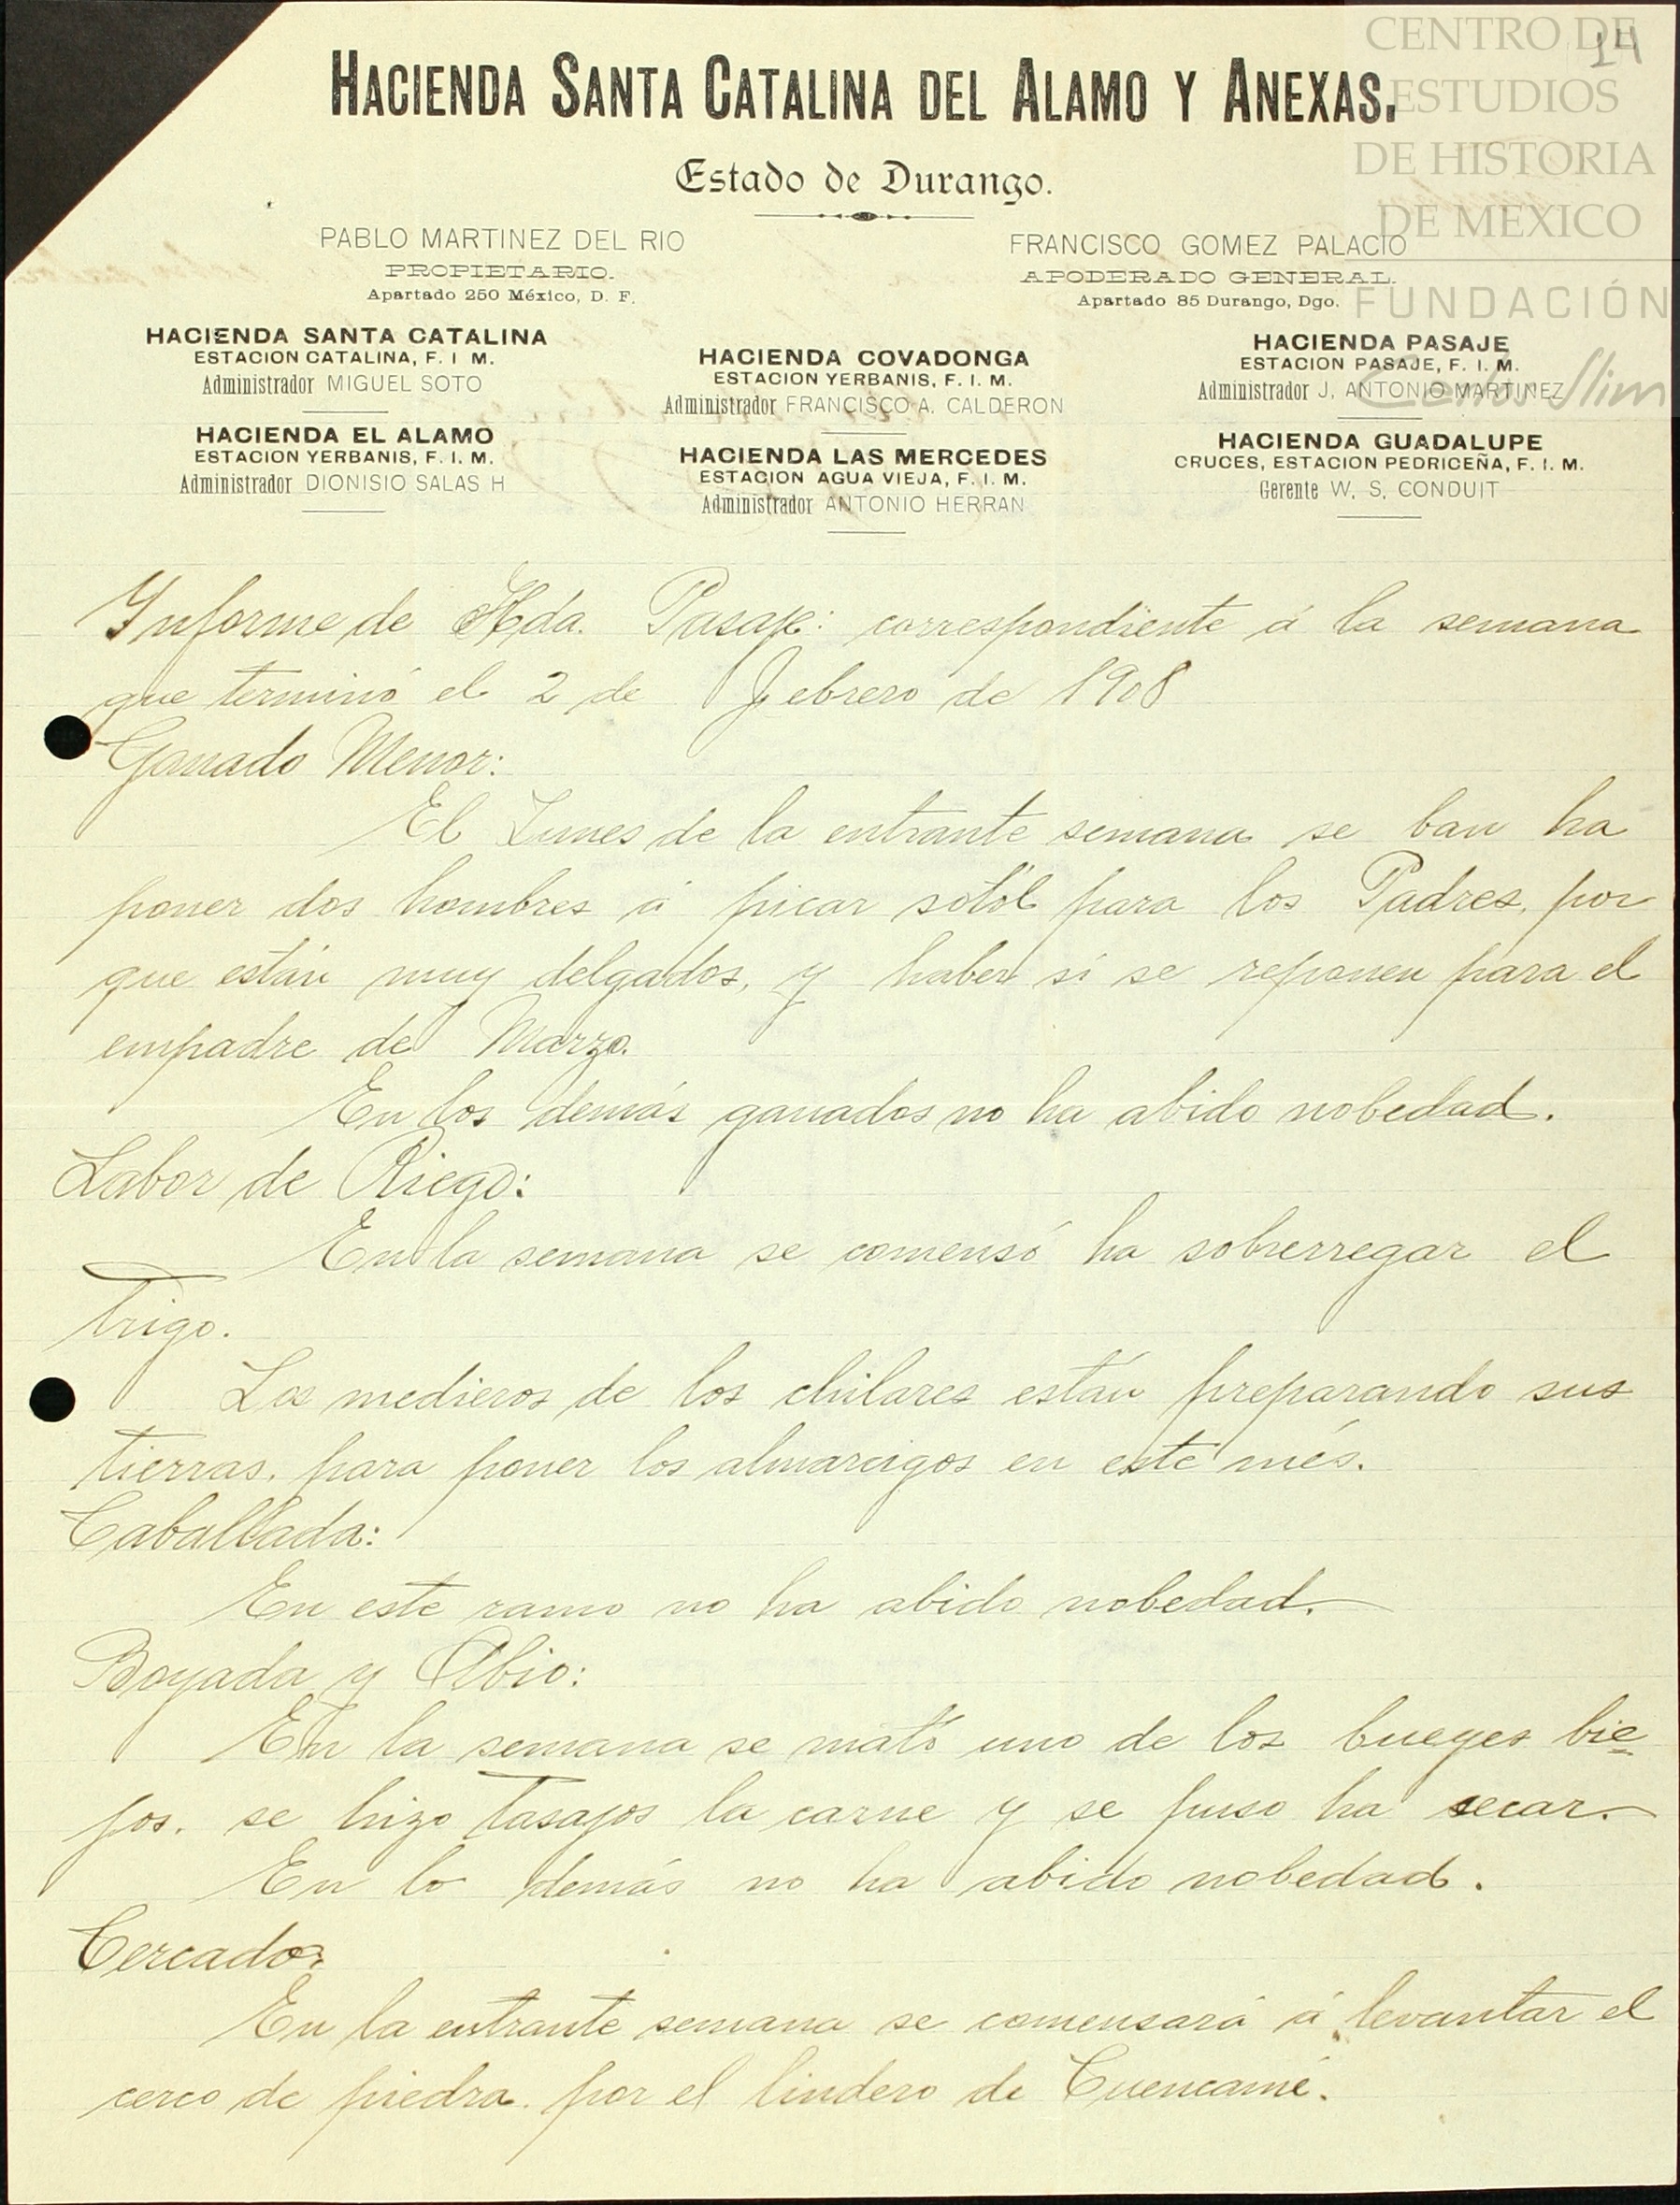 CENTRO DE
ESTUDIOS
DE HISTORIA
DE MEXICO
FUNDACIÓN
Carlos Slim
14
HACIENDA SANTA CATALINA DEL ALAMO Y ANEXAS.
Estado de Durango.
PABLO MARTINEZ DEL RIO
PROPIETARIO.
Apartado 250 México, D. F.
FRANCISCO GOMEZ PALACIO
APODERADO GENERAL.
Apartado 85 Durango, Dgo.
HACIENDA SANTA CATALINA
ESTACION CATALINA, F. I. M.
Administrador MIGUEL SOTO
HACIENDA EL ALAMO
ESTACION YERBANIS, F. I. M.
Administrador DIONISIO SALAS H
HACIENDA COVADONGA
ESTACION YERBANIS, F. I. M.
Administrador FRANCISCO A. CALDERON
HACIENDA LAS MERCEDES
ESTACION AGUA VIEJA, F. I. M.
Administrador ANTONIO HERRAN
HACIENDA PASAJE
ESTACION PASAJE, F. I. M.
Administrador J. ANTONIO MARTINEZ
HACIENDA GUADALUPE
CRUCES, ESTACION PEDRICEÑA, F. I. M.
Gerente W. S. CONDUIT
Informe de Hda. Pasaje: correspondiente á la semana
que terminó el 2 de Febrero de 1908
Ganado Menor:
El Lunes de la entrante semana se ban ha
poner dos hombres á picar sotól para los Padres, por
que están muy delgados, y haber sí se reponen para el
empadre de Marzo.
En los demás ganados no ha abido nobedad.
Labor de Riego:
En la semana se comensó ha sobrerregar el
trigo.
Los medieros de los chilares están preparando sus
tierras, para poner los almarcigos en este més.
Caballada:
En este ramo no ha abido nobedad.
Boyada y Abio:
En la semana se mató uno de los bueyes bie=
jos, se hizo tasajos la carne y se puso ha secar.
En lo demás no ha abido nobedad.
Cercado:
En la entrante semana se comensará á levantar el
cerco de piedra, por el lindero de Cuencamé.